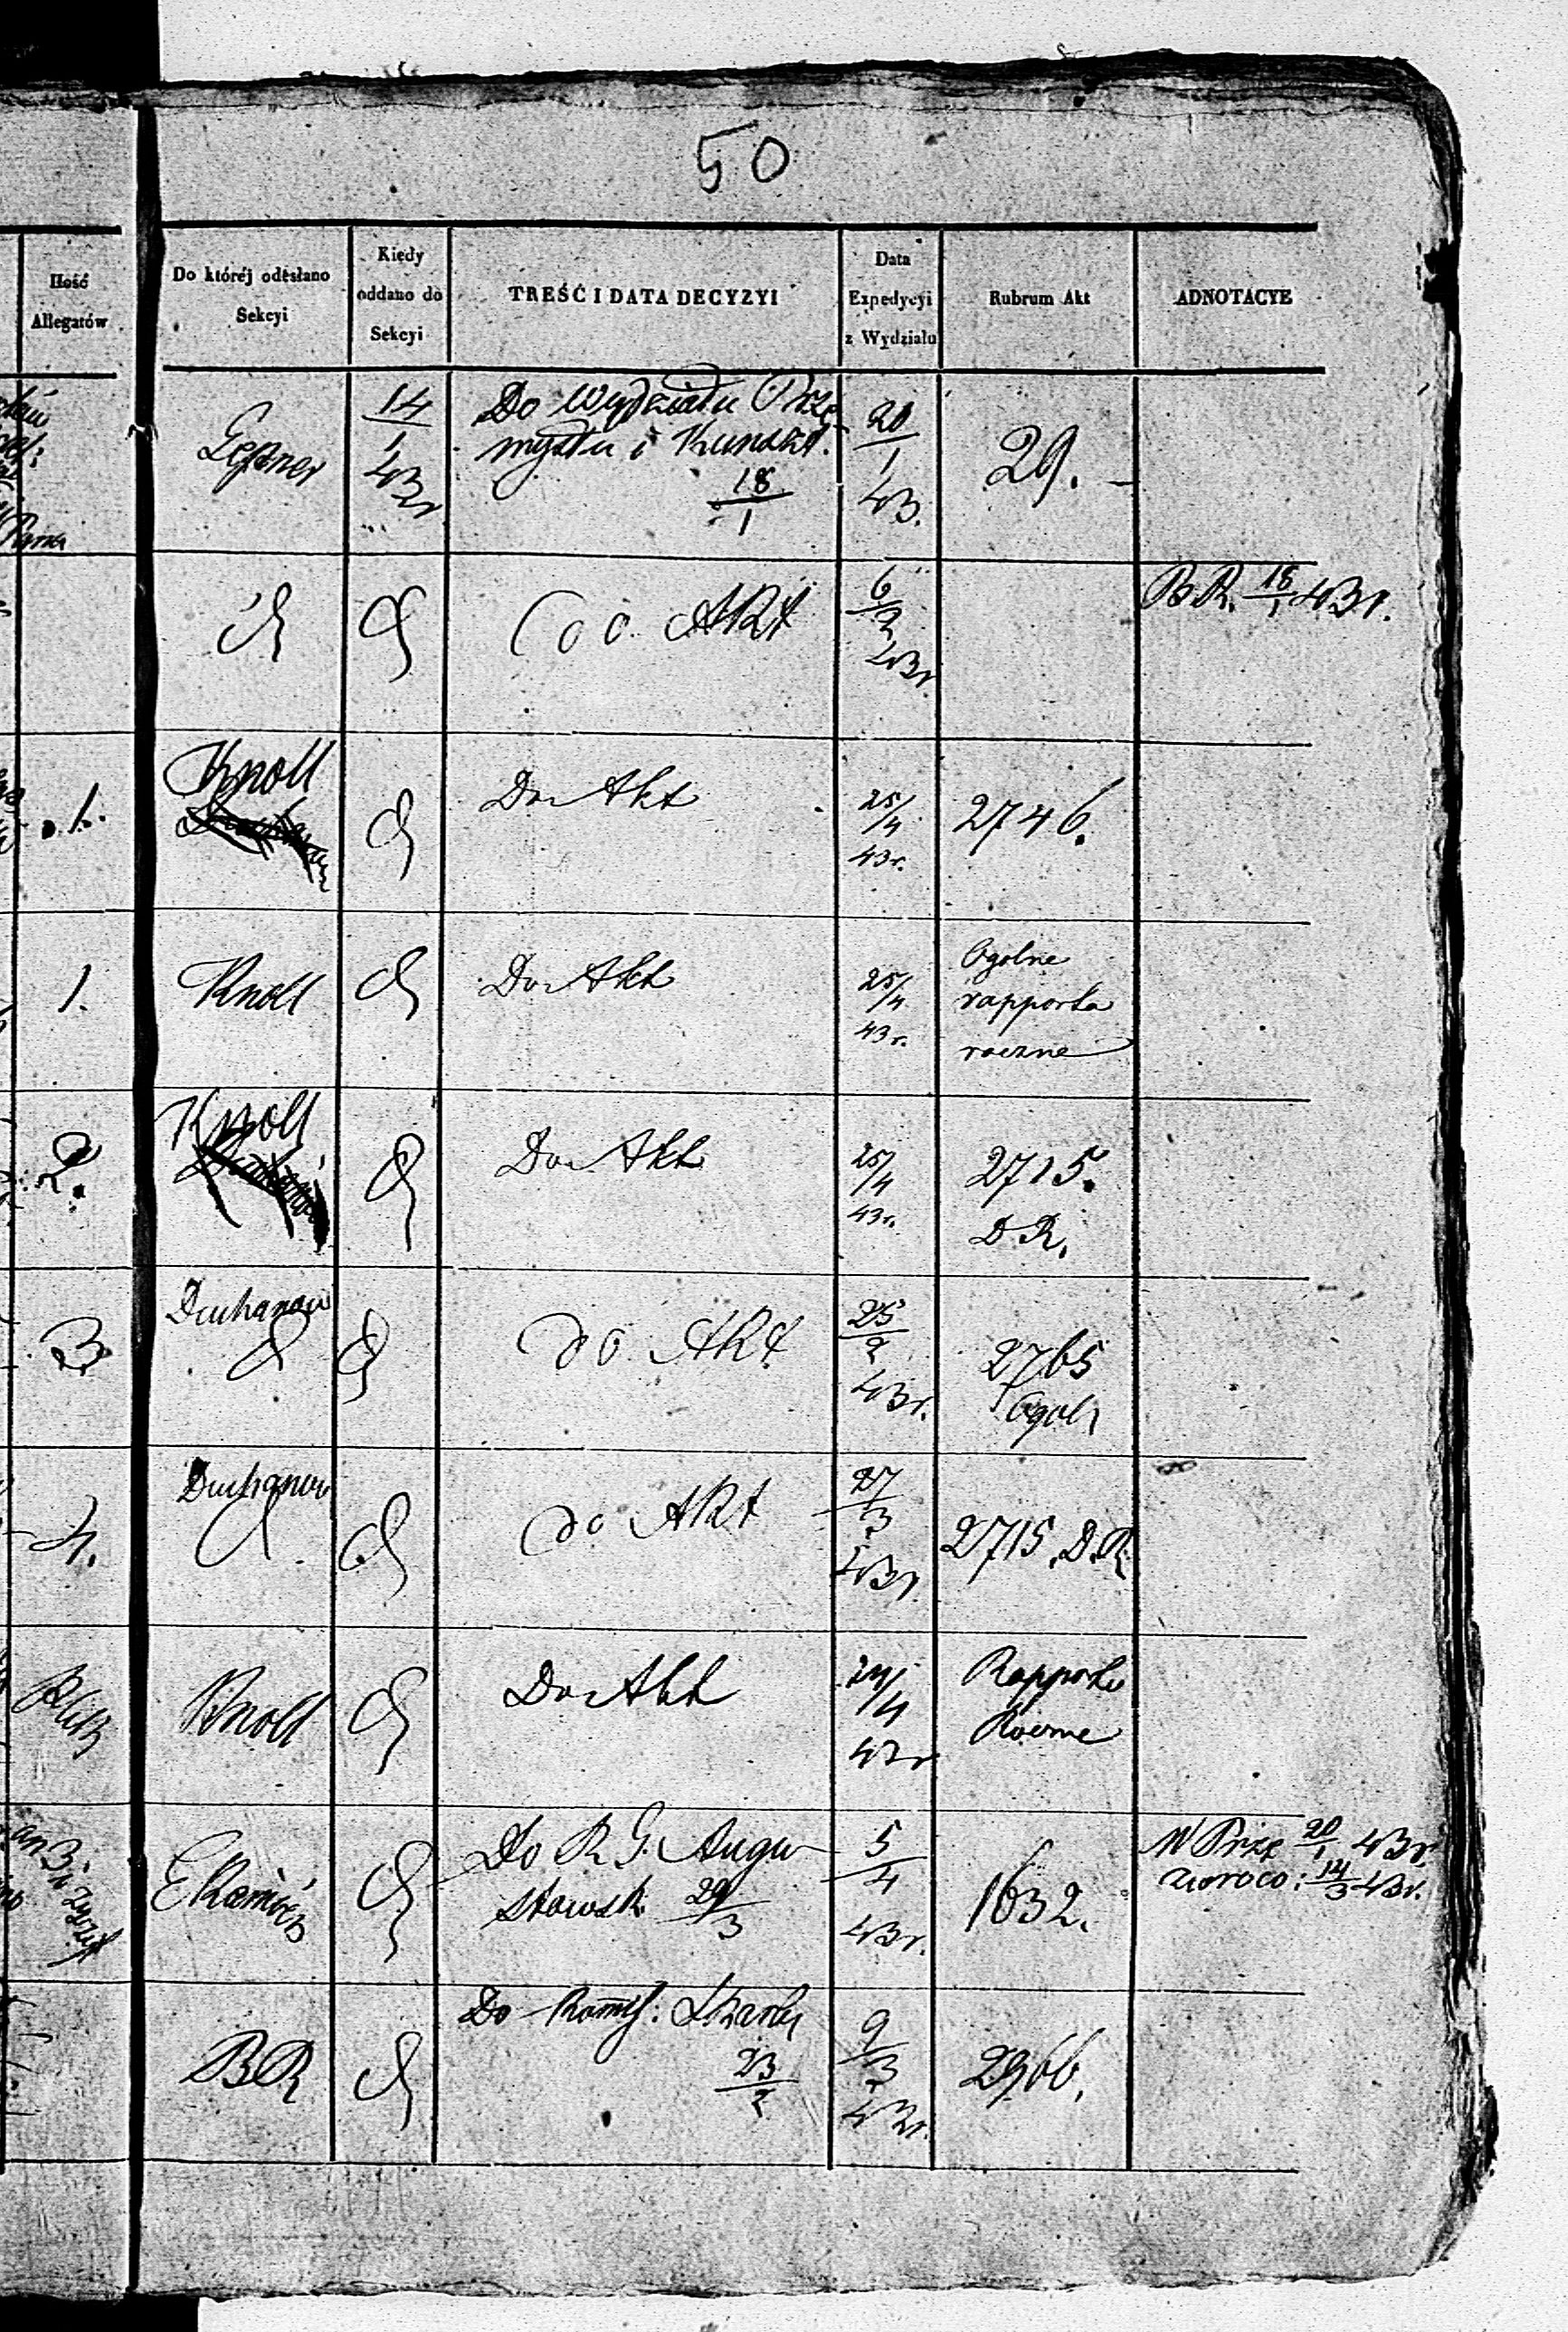 50
Ilość
Allegatów
Do któréj odesłano
Sekcyi
Kiedy
oddano do
Sekcyi
TREŚĆ I DATA DECYZYI
Data
Expedycyi
z Wydziału
Rubrum Akt
ADNOTACYE
14
1
43r
Do Wydziału Prze
mysłu i Kunszt.
18
1
20
1
43.
29.
do Akt
6
2
43r
B R. 18/1 43r.
1.
Knoll
Do Akt
25/4
43r.
2746.
1.
Knoll
Do Akt
25/4
43r.
Ogolne
rapporta
roczne
2.
Knoll
Do Akt
25/4
43r.
2715.
D. R.
3
Duchanow
do Akt
25
2
43r.
2765
Ogol
4.
Duchanow
do Akt
27
3
43r.
2715. D. R.
Knoll
Do Akt
24/4
43r
Rapporta
Roczne
Do R. G. Augu
stowsk. 29/3
5
4
43r.
1632.
W Prze 20/1 43r.
zwroco: 14/3 43r.
BR
Do Komis: Skarb
23
2
9
3
43r.
2966.